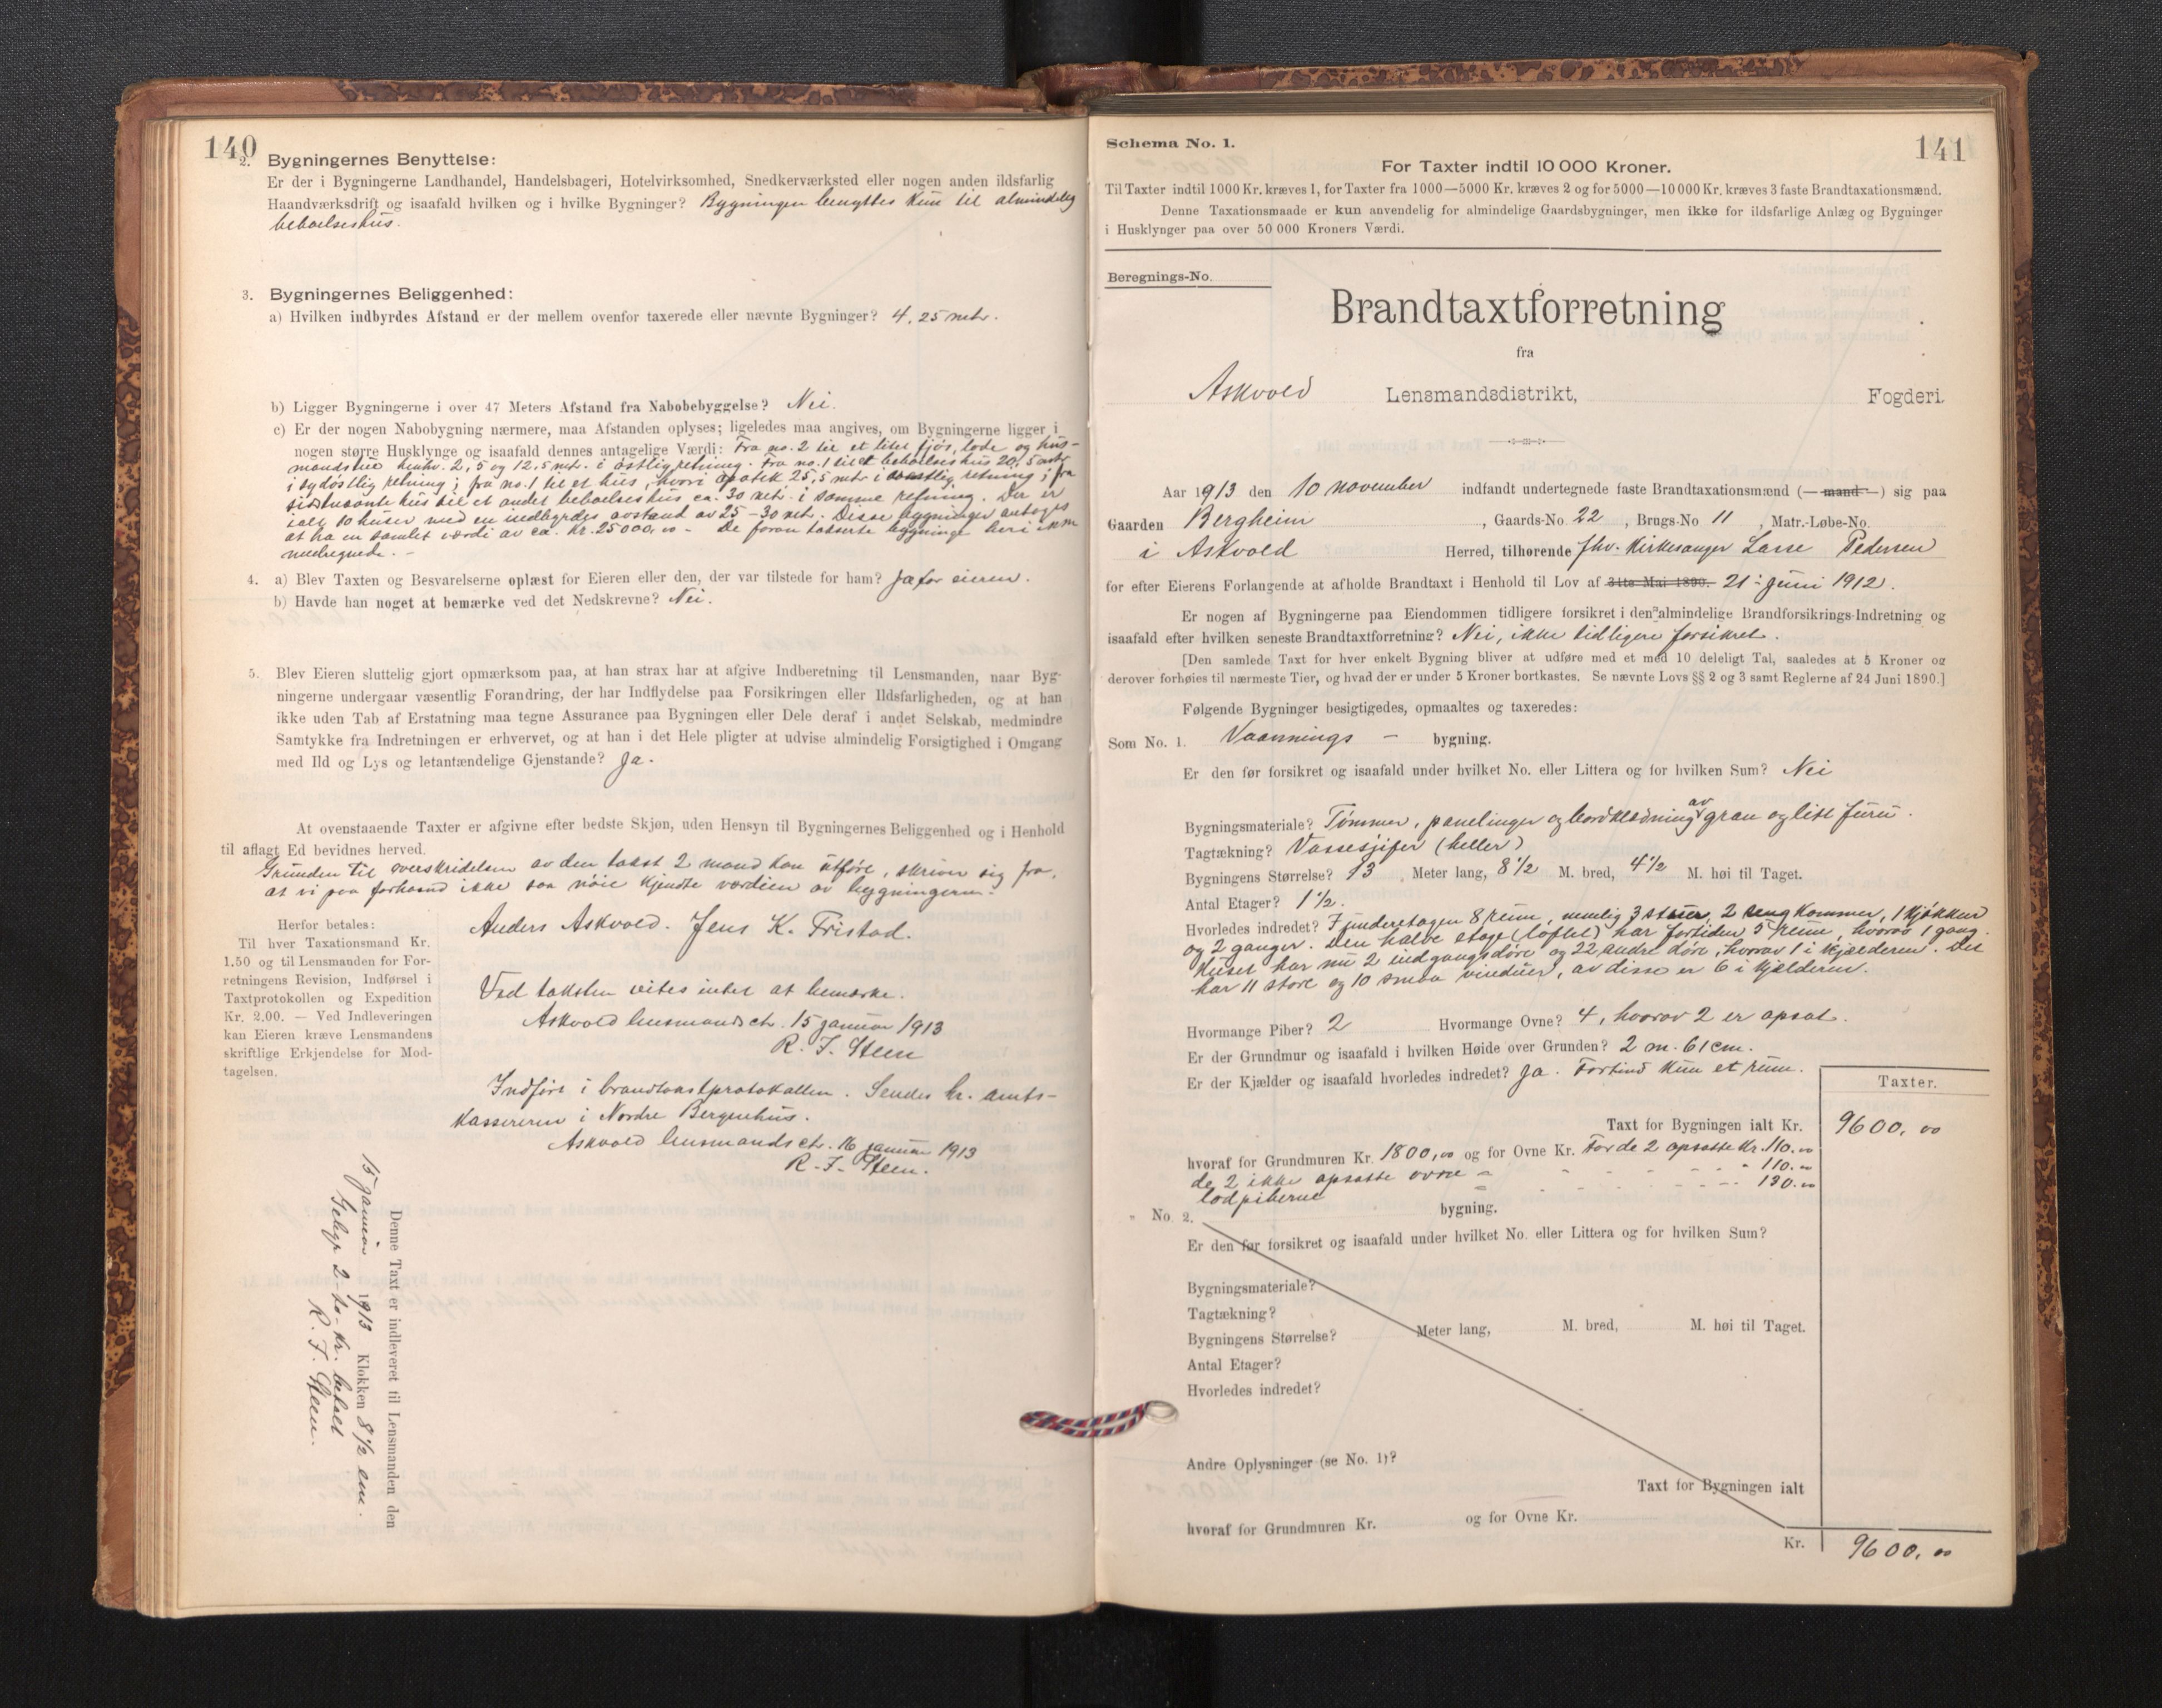 140
2. Bygningernes Benyttelse:
Er der i Bygningerne Landhandel, Handelsbageri, Hotelvirksomhed, Snedkerværksted eller nogen anden ildsfarlig
Haandværksdrift og isaafald hvilken og i hvilke Bygninger? Bygningen benyttes kun til almindelig
beboelseshus.
3. Bygningernes Beliggenhed:
a) Hvilken indbyrdes Afstand er der mellem ovenfor taxerede eller nævnte Bygninger? 4,25 mtr.
b) Ligger Bygningerne i over 47 Meters Afstand fra Nabobebyggelse? Nei.
c) Er der nogen Nabobygning nærmere, maa Afstanden oplyses; ligeledes maa angives, om Bygningerne ligger i
nogen større Husklynge og isaafald dennes antagelige Værdi: Fra no. 2 til et litet fjøs, løde og hus-
mandstue henhv. 2,5 og 12,5 mtr. i østlig retning. Fra no. 1 til et beboelseshus 20,5 mtr
i sydøstlig retning; fra no. 1 til et hus, hvori apotek 25,5 mtr i retning; fra
sidstnævnte hus til et andet beboelseshus ca. 30 mtr. i samme retning. Der er
ialt 10 huser med en indbyrdes avstand av 25-30 mtr. Disse bygninger antages
at ha en samlet værdi av ca. kr. 25 000,00 - De foran takserte bygninger heri ikke
medregnede. -
4. a) Blev Taxten og Besvarelserne oplæst for Eieren eller den, der var tilstede for ham? Ja for eieren.
b) Havde han noget at bemærke ved det Nedskrevne? Nei.
5. Blev Eieren sluttelig gjort opmærksom paa, at han strax har at afgive Indberetning til Lensmanden, naar Byg-
ningerne undergaar væsentlig Forandring, der har Indflydelse paa Forsikringen eller Ildsfarligheden, og at han
ikke uden Tab af Erstatning maa tegne Assurance paa Bygningen eller Dele deraf i andet Selskab, medmindre
Samtykke fra Indretningen er erhvervet, og at han i det Hele pligter at udvise almindelig Forsigtighed i Omgang
med Ild og Lys og letantændelige Gjenstande? Ja.
At ovenstaaende Taxter er afgivne efter bedste Skjøn, uden Hensyn til Bygningernes Beliggenhed og i Henhold
til aflagt Ed bevidnes herved.
Grunden til overskridelsen av den takst 2 mand kan utføre, skriver sig fra,
at vi paa forhaand ikke saa nøie kjendte værdien av bygningerne.
Anders Askvold. Jens K. Tristad.
Herfor betales:
Til hver Taxationsmand Kr.
1.50 og til Lensmanden for For-
retningens Revision, Indførsel i
Taxtprotokollen og Expedition
Kr. 2.00. — Ved Indleveringen
kan Eieren kræve Lensmandens
skriftlige Erkjendelse for Mod-
tagelsen.
Ved taksten vites intet at bemærke.
Askvold lensmandsct. 15 januar 1913
R. F. Steen
Indført i brandtakstprotokollen. Sendes hr. amts-
kassereren i Nordre Bergenhus.
Askvold lensmandsct. 16 januar 1913
R. F. Steen.
Denne Taxt er indleveret til Lensmanden den
15 januar 1913 Klokken 8 1/2 em.
Gebyr 2-to-kr. betalt
R. F. Steen.
Schema No. 1.
141
For Taxter indtil 10 000 Kroner.
Til Taxter indtil 1000 Kr. kræves 1, for Taxter fra 1000—5000 Kr. kræves 2 og for 5000—10 000 Kr. kræves 3 faste Brandtaxationsmænd.
Denne Taxationsmaade er kun anvendelig for almindelige Gaardsbygninger, men ikke for ildsfarlige Anlæg og Bygninger
i Husklynger paa over 50 000 Kroners Værdi.
Beregnings-No.
Brandtaxtforretning
fra
Askvold Lensmandsdistrikt, Fogderi.
Aar 1913 den 10 november indfandt undertegnede faste Brandtaxationsmænd (—mand—) sig paa
Gaarden Bergheim, Gaards-No. 22, Brugs-No 11, Matr.-Løbe-No.
i Askvold Herred, tilhørende fhv. kirkesanger Lasse Pedersen
for efter Eierens Forlangende at afholde Brandtaxt i Henhold til Lov af 31te Mai 1890. 21: juni 1912.
Er nogen af Bygningerne paa Eiendommen tidligere forsikret i den almindelige Brandforsikrings-Indretning og
isaafald efter hvilken seneste Brandtaxtforretning? Nei, ikke tidligere forsikret.
[Den samlede Taxt for hver enkelt Bygning bliver at udføre med et med 10 deleligt Tal, saaledes at 5 Kroner og
derover forhøies til nærmeste Tier, og hvad der er under 5 Kroner bortkastes. Se nævnte Lovs §§ 2 og 3 samt Reglerne af 24 Juni 1890.]
Følgende Bygninger besigtigedes, opmaaltes og taxeredes:
Som No. 1. Vaannings - bygning.
Er den før forsikret og isaafald under hvilket No. eller Littera og for hvilken Sum? Nei
Bygningsmateriale? Tømmer, panelinger og bordklædning av gran og litt furu.
Tagtækning? (heller)
Bygningens Størrelse? 13 Meter lang, 8 1/2 M. bred, 4 1/2 M. høi til Taget.
Antal Etager? 1 1/2.
Hvorledes indredet? I underetagen 8 rum, nemlig 3 stuer, 2 sengkammer, 1 kjøkken
og 2 ganger. Den halve etage (loftet) har fortiden 5 rum, hvorav 1 gang.
Huset har nu 2 indgangsdøre og 22 andre døre, hvorav 1 i kjælderen. Det
har 11 store og 10 smaa vinduer, av disse er 6 i kjælderen.
Hvormange Piber? 2 Hvormange Ovne? 4, hvorav 2 er opsat.
Er der Grundmur og isaafald i hvilken Høide over Grunden? 2 m. 61 cm.
Er der Kjælder og isaafald hvorledes indredet? Ja. Fortiden kun et rum.
Taxter.
Taxt for Bygningen ialt Kr. 9600,00
hvoraf for Grundmuren Kr. 1800,00 og for Ovne Kr. For de 2 opsatte Kr. 110.00
de 2 ikke opsatte ovne - - - - - 110.00
lodpiberne - - - - - 130.00
" No. 2. bygning.
Er den før forsikret og isaafald under hvilket No. eller Littera og for hvilken Sum?
Bygningsmateriale?
Tagtækning?
Bygningens Størrelse? Meter lang, M. bred, M. høi til Taget.
Antal Etager?
Hvorledes indredet?
Andre Oplysninger (se No. 1)?
Taxt for Bygningen ialt
hvoraf for Grundmuren Kr. og for Ovne Kr.
Kr. 9600,00